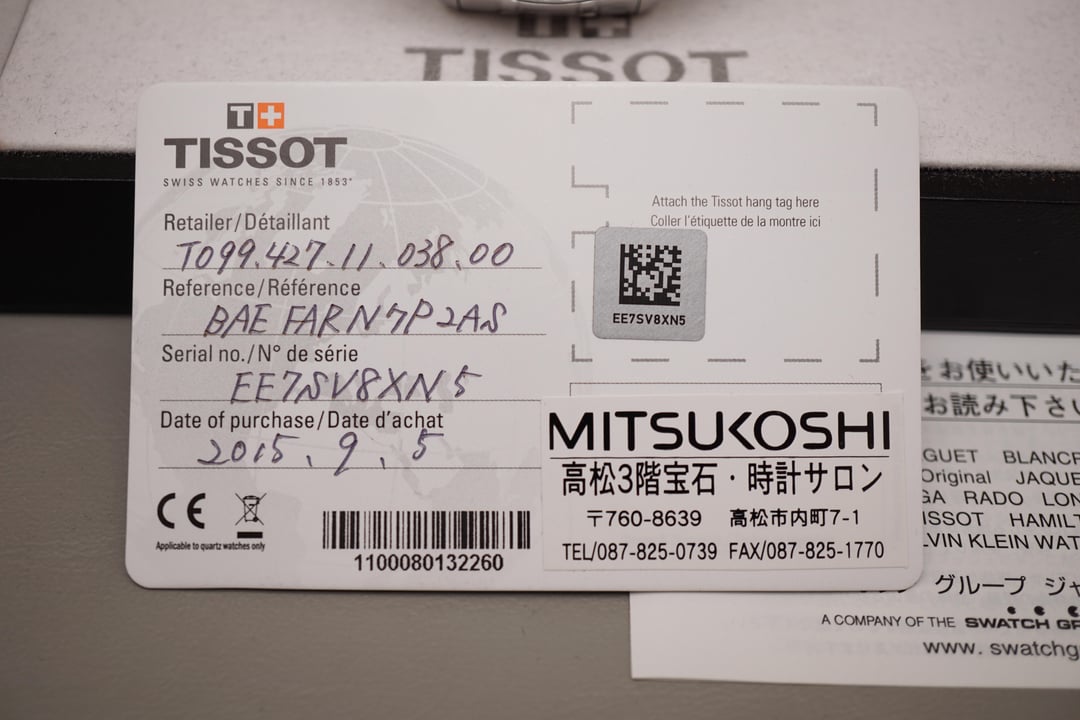 TISSOT
T+
TISSOT
SWISS WATCHES SINCE 1853
Retailer/Détaillant
T099.427.11.038.00
Reference/Référence
BAE FAR N7P2AS
Serial no./N° de série
EE7SV8XN5
Date of purchase/Date d'achat
2015.9.5
CE
Applicable to quartz watches only
1100080132260
Attach the Tissot hang tag here
Coller l'étiquette de la montre ici
EE7SV8XN5
MITSUKOSHI
高松3階宝石・時計サロン
〒760-8639 高松市内町7-1
TEL/087-825-0739 FAX/087-825-1770
をお使いいた
お読み下さい
GUET BLANCP
Original JAQUE
GA RADO LON
ISSOT HAMILT
LVIN KLEIN WAT
グループ ジャ
A COMPANY OF THE SWATCH GR
www.swatchg